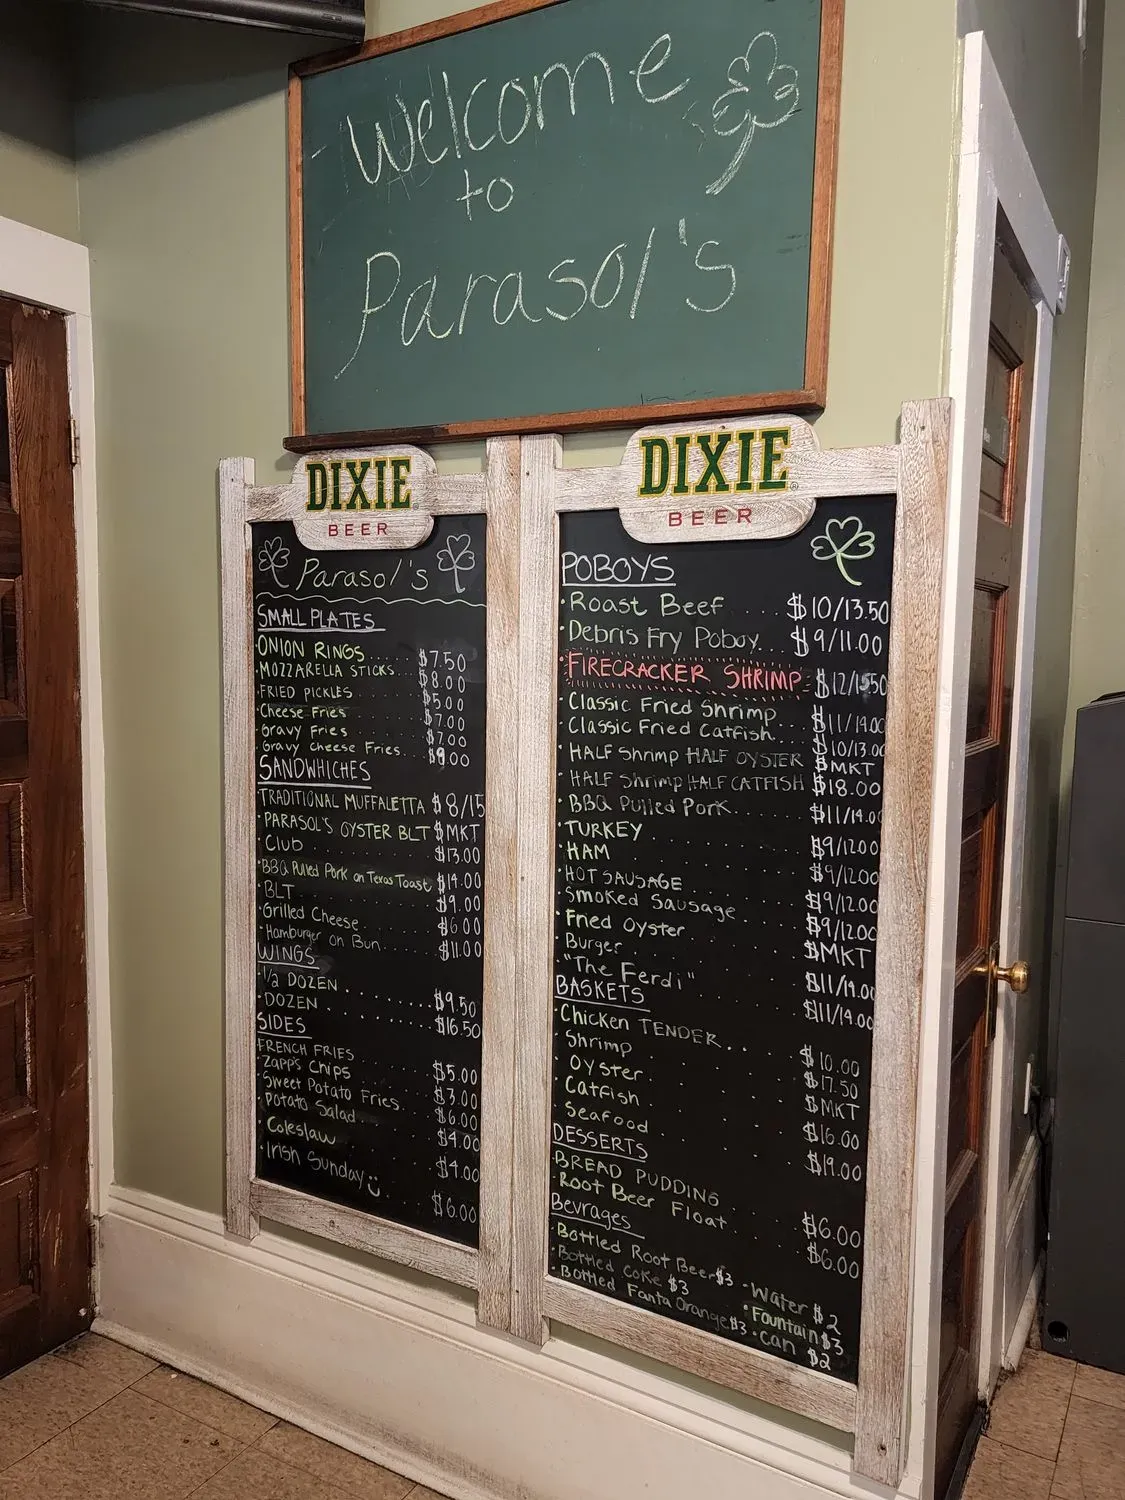 Welcome
to
Parasol's
DIXIE
BEER
Parasol's
SMALL PLATES
·ONION RINGS....$7.50
·MOZZARELLA STICKS...$8.00
·FRIED PICKLES....$5.00
·Cheese Fries....$7.00
·Gravy Fries....$7.00
·Gravy Cheese Fries..$9.00
SANDWHICHES
·TRADITIONAL MUFFALETTA $8/15
·PARASOL'S OYSTER BLT $MKT
·Club...$13.00
·BBQ Pulled Pork on Texas Toast $14.00
·BLT...$9.00
·Grilled Cheese...$6.00
·Hamburger on Bun...$11.00
WINGS
·1/2 DOZEN........$9.50
·DOZEN........$16.50
SIDES
·FRENCH FRIES...$5.00
·Zapp's Chips...$3.00
·Sweet Potato Fries..$6.00
·Potato Salad...$4.00
·Coleslaw...$4.00
·Irish Sunday...$6.00
DIXIE
BEER
POBOYS
·Roast Beef....$10/13.50
·Debris Fry Poboy..$9/11.00
·FIRECRACKER SHRIMP $12/15.50
·Classic Fried Shrimp..$11/14.00
·Classic Fried Catfish..$10/13.00
·HALF Shrimp HALF OYSTER $MKT
·HALF Shrimp HALF CATFISH $18.00
·BBQ Pulled Pork....$11/14.00
·TURKEY.......$9/12.00
·HAM........$9/12.00
·HOT SAUSAGE.....$9/12.00
·Smoked Sausage...$9/12.00
·Fried Oyster....$MKT
·Burger.......$11/14.00
·"The Ferdi".....$11/14.00
BASKETS
·Chicken TENDER....$10.00
·Shrimp.....$17.50
·Oyster.....$MKT
·Catfish.....$16.00
·Seafood.....$19.00
DESSERTS
·BREAD PUDDING....$6.00
·Root Beer Float...$6.00
Bevrages
·Bottled Root Beer $3 ·Water $2
·Bottled Coke $3 ·Fountain $3
·Bottled Fanta Orange $3 ·Can $2